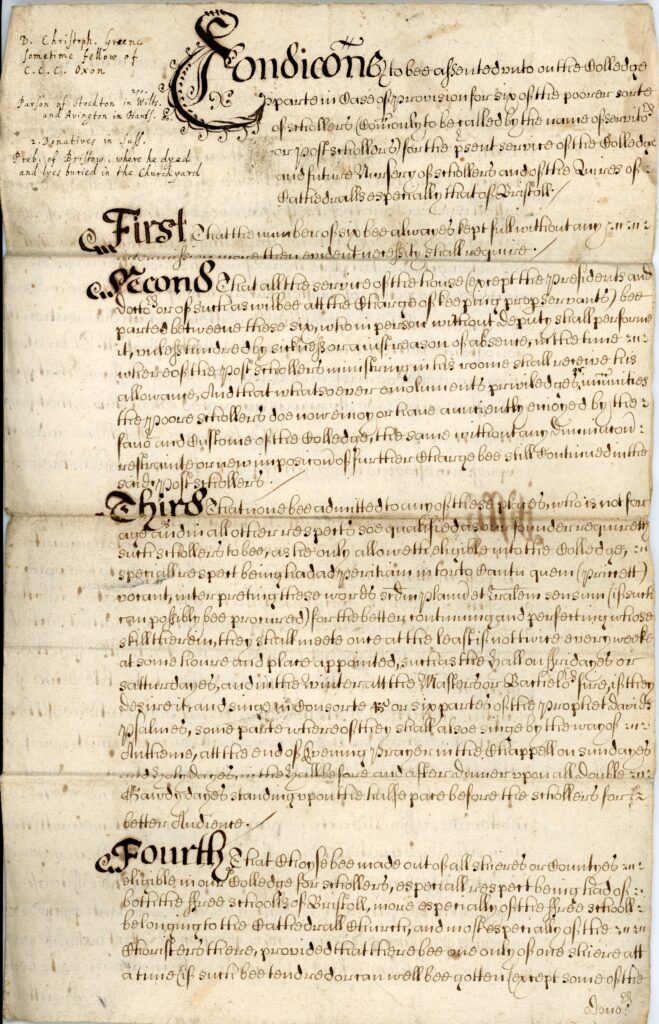 D. Christoph. Greene
sometime fellow of
C. C. C. Oxon
Parson of Stockton in Wilts.
and Avington in Hants. &
2. Donatives in Suff.
Preb. of Bristow, where he dyed
and lyes buried in the Churchyard
Condicõns to bee assented vnto on the Colledge
parte in Case of Provision for six of the poorer sorte
of schollers (Comonly to be called by the name of servitors
or Post schollers) for the p'sent service of the Colledge
and future Nursery of schollers and of the Quires of
Cathedralls especially that of Bristoll.
First That the number of six bee alwayes kept full without any
more then evident necessity shall require.
Second That all the service of the house (except the Presidents and
doctors or of such as wilbee att the Charge of keeping prop servants) bee
parted betweene those six, who in person without deputy shall performe
it, vnless hindred by sickness or a iust reason of absence, in the time
whereof the Post schollers ministring in his roome shall receive his
allowance, And that whatsoever emoluments priviledges immunities
the Poore schollers doe now enioy or have aunciently enioyed by the
favor and Custome of the Colledge, the same without any diminucon
restrainte or new imposicon of further Charge bee still Continued in the
said Post schollers.
Third That none bee admitted to any of these places, who is not for
age and in all other respects soe qualified as our founder requireth
such schollers to bee, as he only alloweth eligible into the Colledge,
speciall respect being had ad Peritiam in cantu quem (Pricksett)
vocant, interpreting these words scdm Planu et Vsalem sensum (if such
can possibly bee procured) for the better continuing and perfecting whose
skill therein, they shall meete once at the least if not twice every weeke
at some houre and place appointed, such as the Hall on fridayes or
satturdayes, and in the winter att the Masters or Batchelors fire, if they
desire it, and singe in Consorte 4 or six partes of the Prophet davids
Psalmes, some parte whereof they shall alsoe singe by the way of
Antheme, att the end of Evening Prayer in the Chappell on sundayes
and Holydayes, in the Hall before and after dinner vpon all double
Gawdy dayes standing vpon the halfe pace before the schollers for
better Audience.
Fourth That Choyse bee made out of all shieres or Countyes
eligible in our Colledge for schollers, especiall respect being had of
both the ffree schools of Bristoll, more especially of the ffree schooll
belonging to the Cathedrall Church, and most especially of the
Choristers there, provided that there bee one only of one shiere att
a time (if such bee tendred or can well bee gotten) except some of the